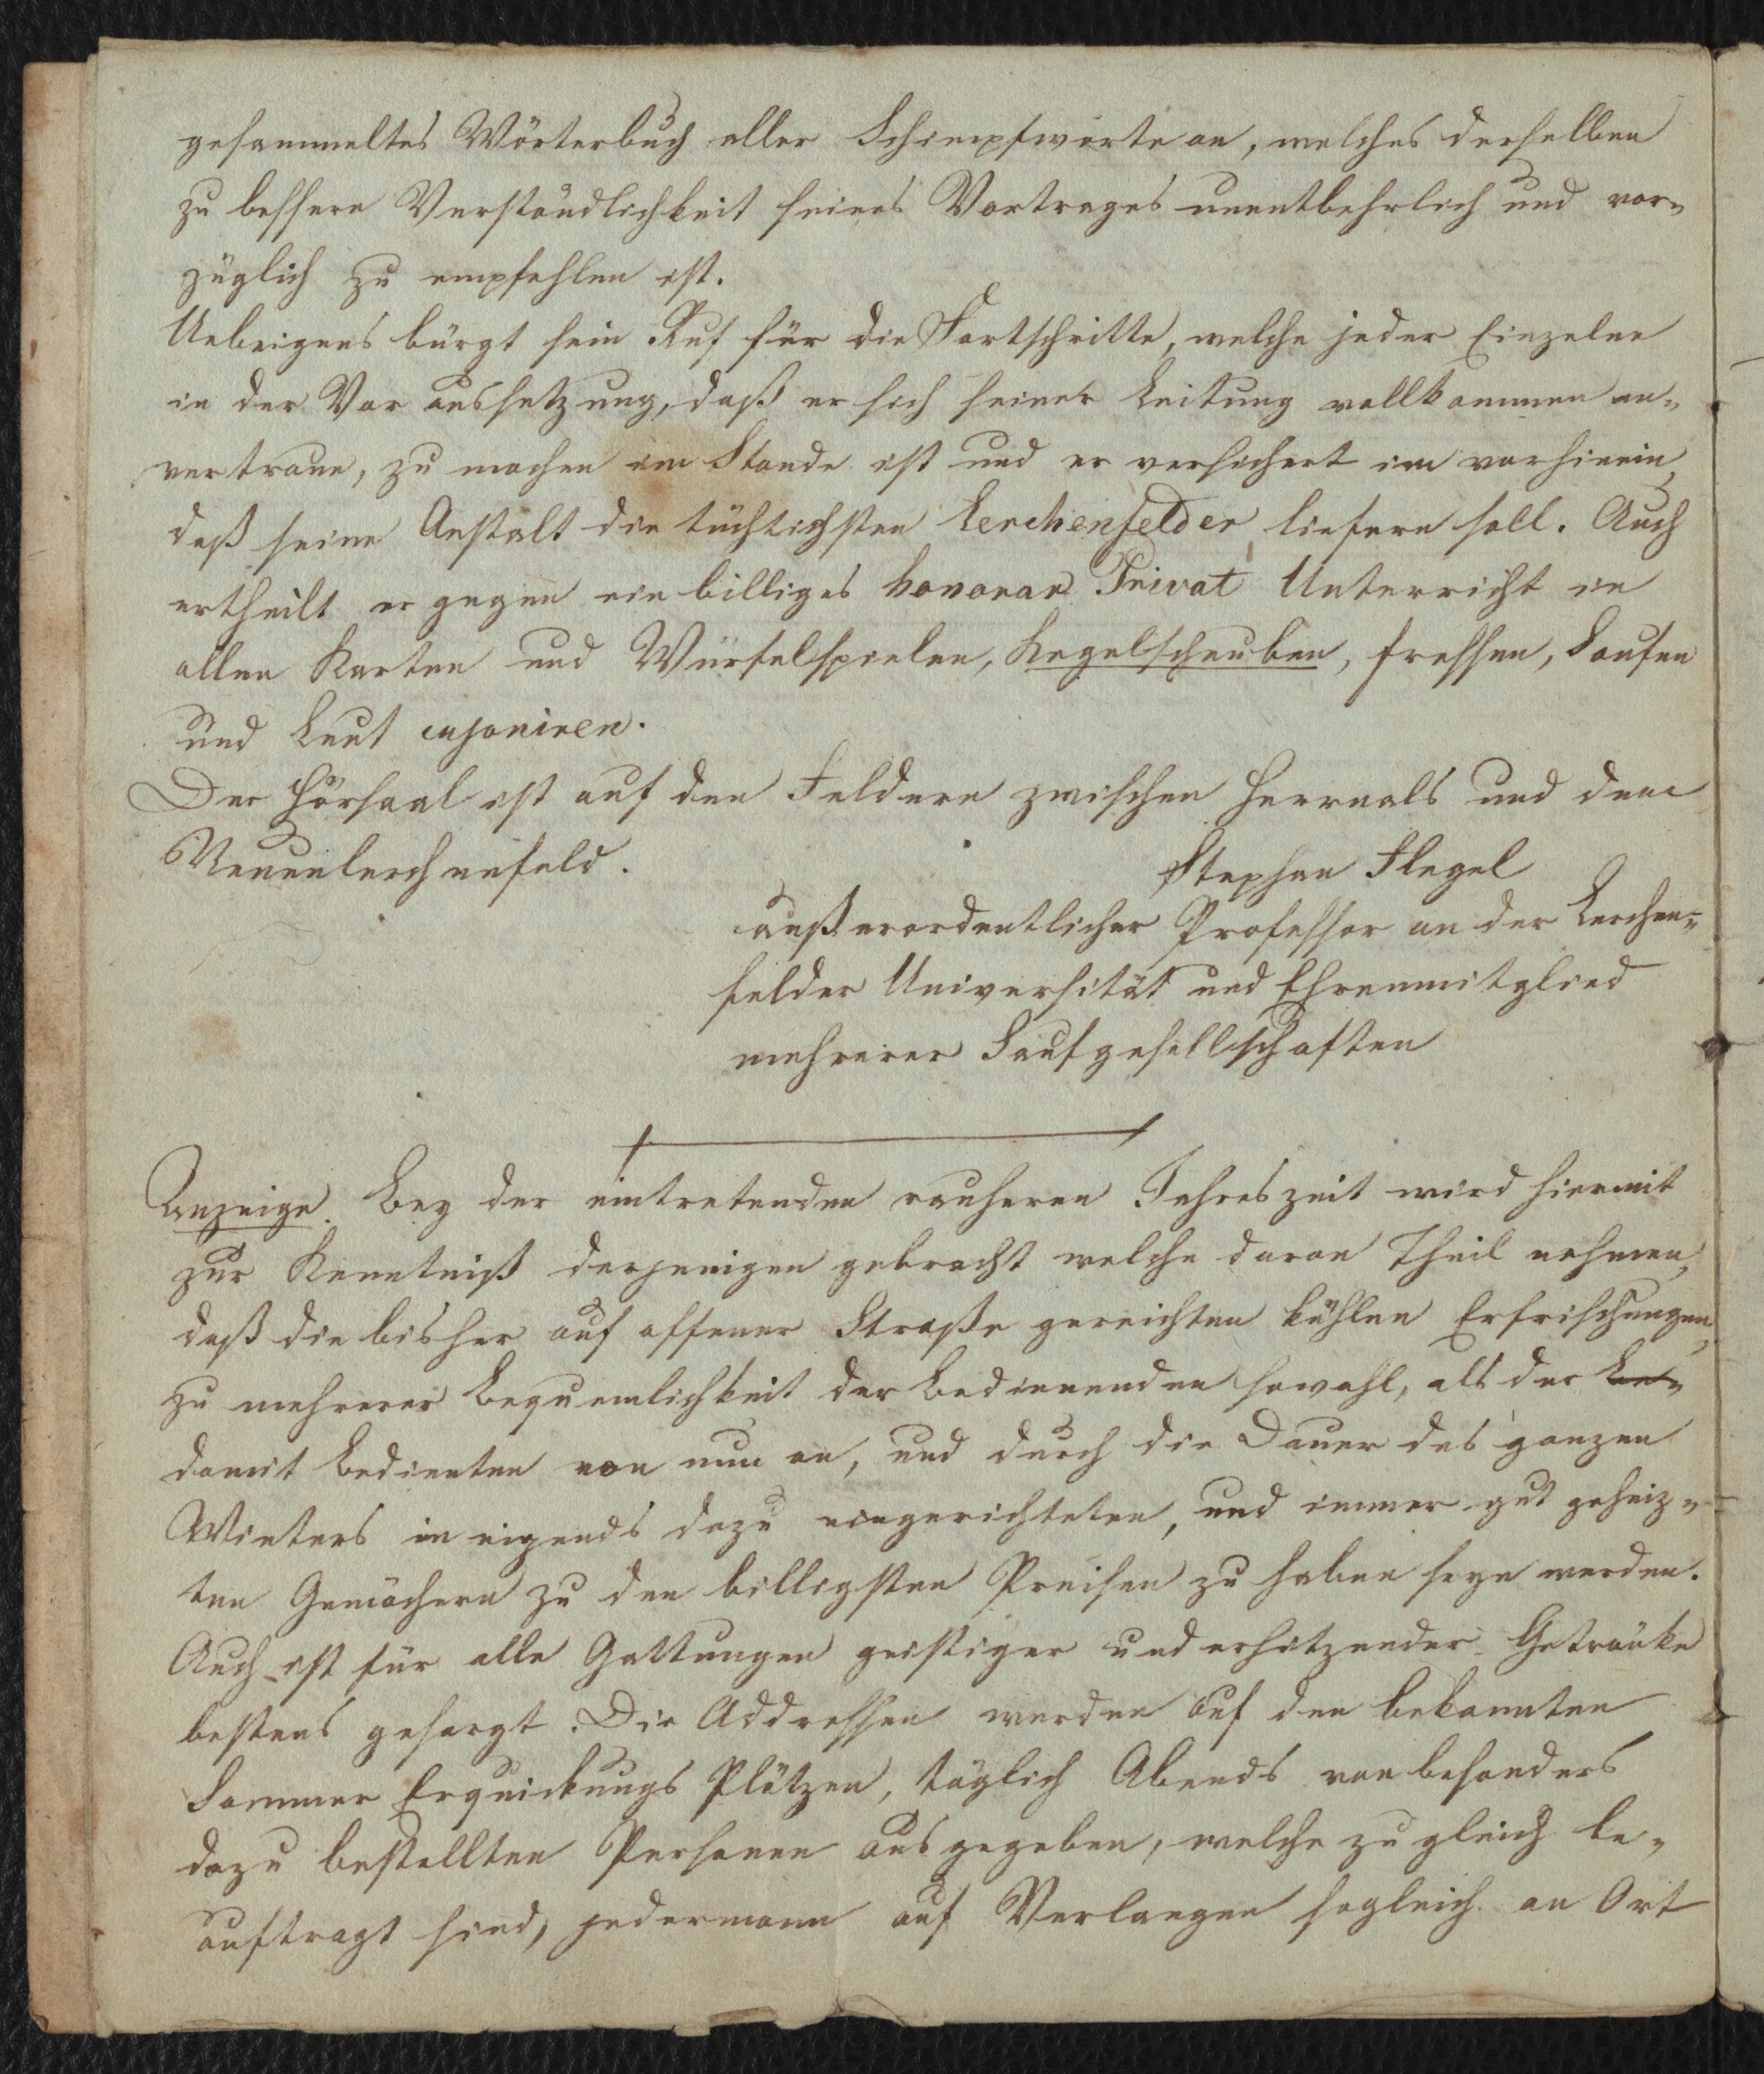 gesammeltes Wörterbuch aller Schimpfworte an, welches derselben
zu bessern Verständlichkeit seines Vortrages unentbehrlich und vor„
züglich zu empfehlen ist.
Uebrigens bürgt sein Ruf für die Fortschritte, welche jeder Einzelne
in der Voraussetzung, daß er sich seiner Leitung vollkommen an„
vertraue, zu machen im Stande ist und er versichert im vorhinein,
daß seine Anstalt die tüchtigsten Lerchenfelder liefern soll. Auch
ertheilt er gegen ein billiges honorar Privat Unterricht in
allen Karten und Würfelspielen, Kegelscheuben, fressen, Saufen
und Leut cujoniren.
Der Hörsaal ist auf den Feldern zwischen Herrnals und dem
Neuenlerchenfeld.
Stephan Flegel
außerordentlicher Professor an der Lerchen=
felder Universität und Ehrenmitglied
mehrerer Saufgesellschaften
Anzeige. Bey der eintretenden rauheren Jahreszeit wird hiermit
zur Kenntniß derjenigen gebracht welche daran Theil nehmen,
daß die bisher auf offener Straße gereichten kühlen Erfrischungen,
zu mehrerer Bequemlichkeit der Bedienenden sowohl, als der Be„
damit Bedienten von nun an, und durch die Dauer des ganzen
Winters in eigends dazu eingerichteten, und immer gut geheiz„
ten Gemächern zu den billigsten Preisen zu haben seyn werden.
Auch ist für alle Gattungen geistiger und erhitzender Getränke
bestens gesorgt. Die Addressen werden auf den bekannten
Sommer Erquickungs Plätzen, täglich Abends von besonders
dazu bestellten Personen ausgegeben, welche zugleich be„
auftragt sind, jedermann auf Verlangen sogleich an Ort